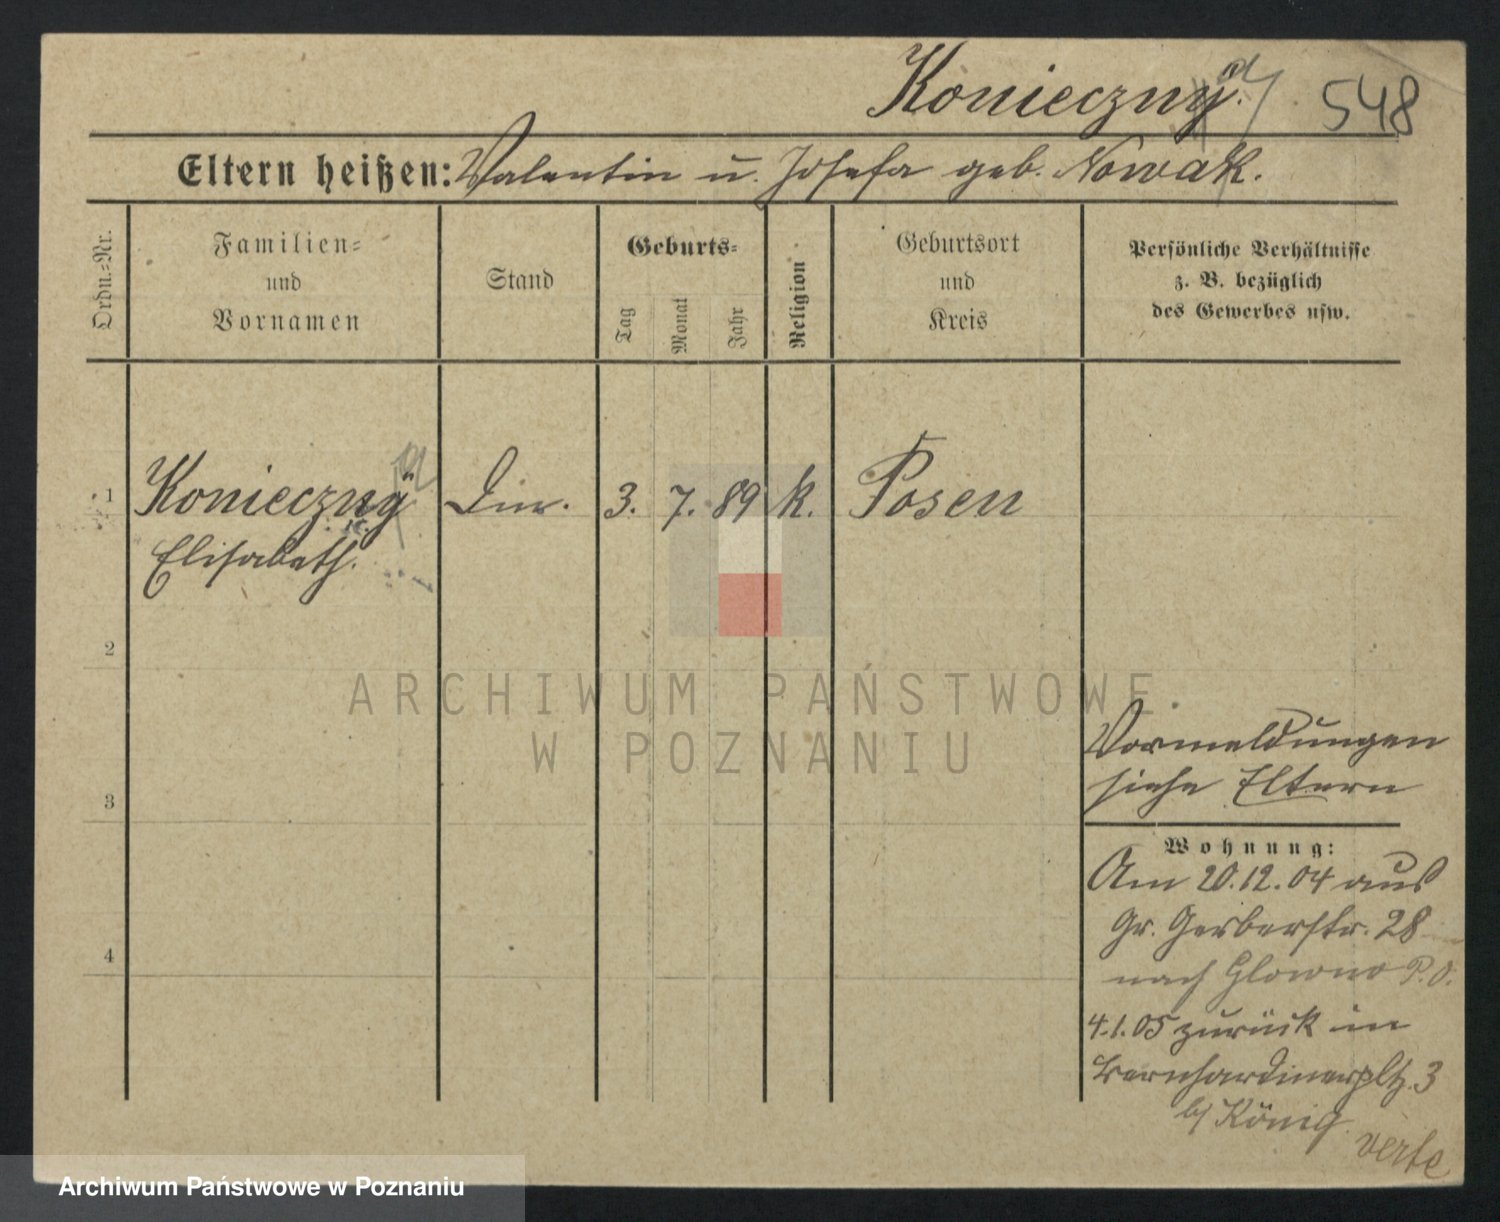 Konieczny 548
Eltern heißen: Valentin u. Josefa geb. Nowak.
Ordn.=Nr.
Familien=
und
Vornamen
Stand
Geburts=
Tag
Monat
Jahr
Religion
Geburtsort
und
Kreis
Persönliche Verhältnisse
z. B. bezüglich
des Gewerbes usw.
1 Konieczny Din. 3. 7. 89 k. Posen
Elisabeth.
2
ARCHIWUM PAŃSTWOWE
W POZNANIU
Vormeldungen
siehe Eltern
3
Wohnung:
Am 20.12.04 aus
Gr. Gerberstr. 28
4
nach Glowno P.O.
4.1.05 zurück in
Bernhardinerpltz. 3
b/ König
verte
Archiwum Państwowe w Poznaniu